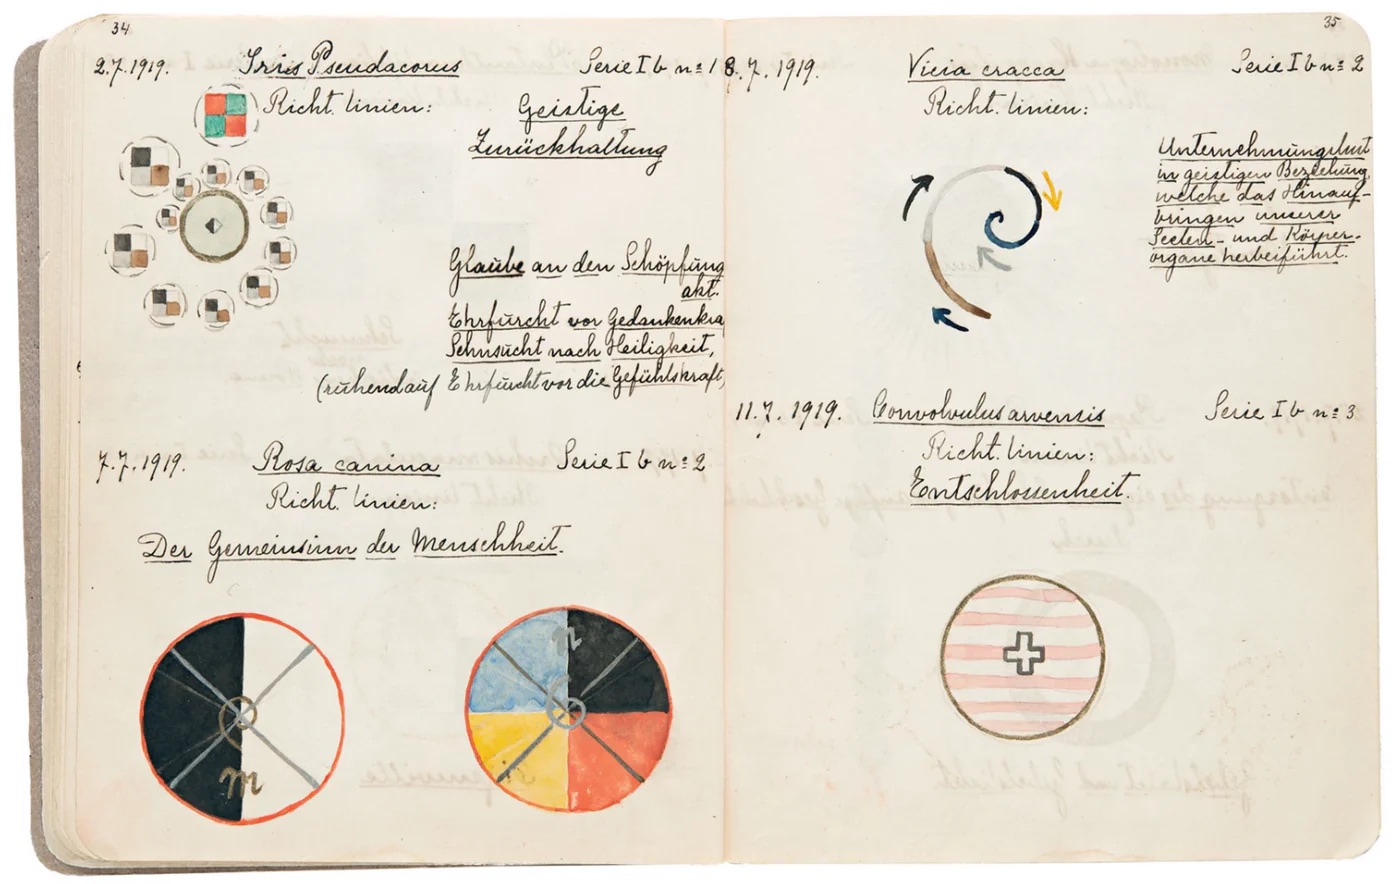 34
2.7.1919. Iris Pseudacorus Serie I b nº 1
Richt. linien: Geistige
Zurückhaltung
Glaube an den Schöpfung
akt.
Ehrfurcht vor Gedankenkra
Sehnsucht nach Heiligkeit,
(ruhend auf Ehrfurcht vor die Gefühlskraft,
7.7.1919. Rosa canina Serie I b nº 2
Richt. linien:
Der Gemeinsinn der Menschheit.
m
n
35
8.7.1919. Vicia cracca Serie I b nº 2
Richt. linien:
Unternehmungslust
in geistigen Beziehung,
welche das Hinauf-
bringen unserer
Seelen- und Körper-
organe herbeiführt.
11.7.1919. Convolvulus arvensis Serie I b nº 3
Richt. linien:
Entschlossenheit.